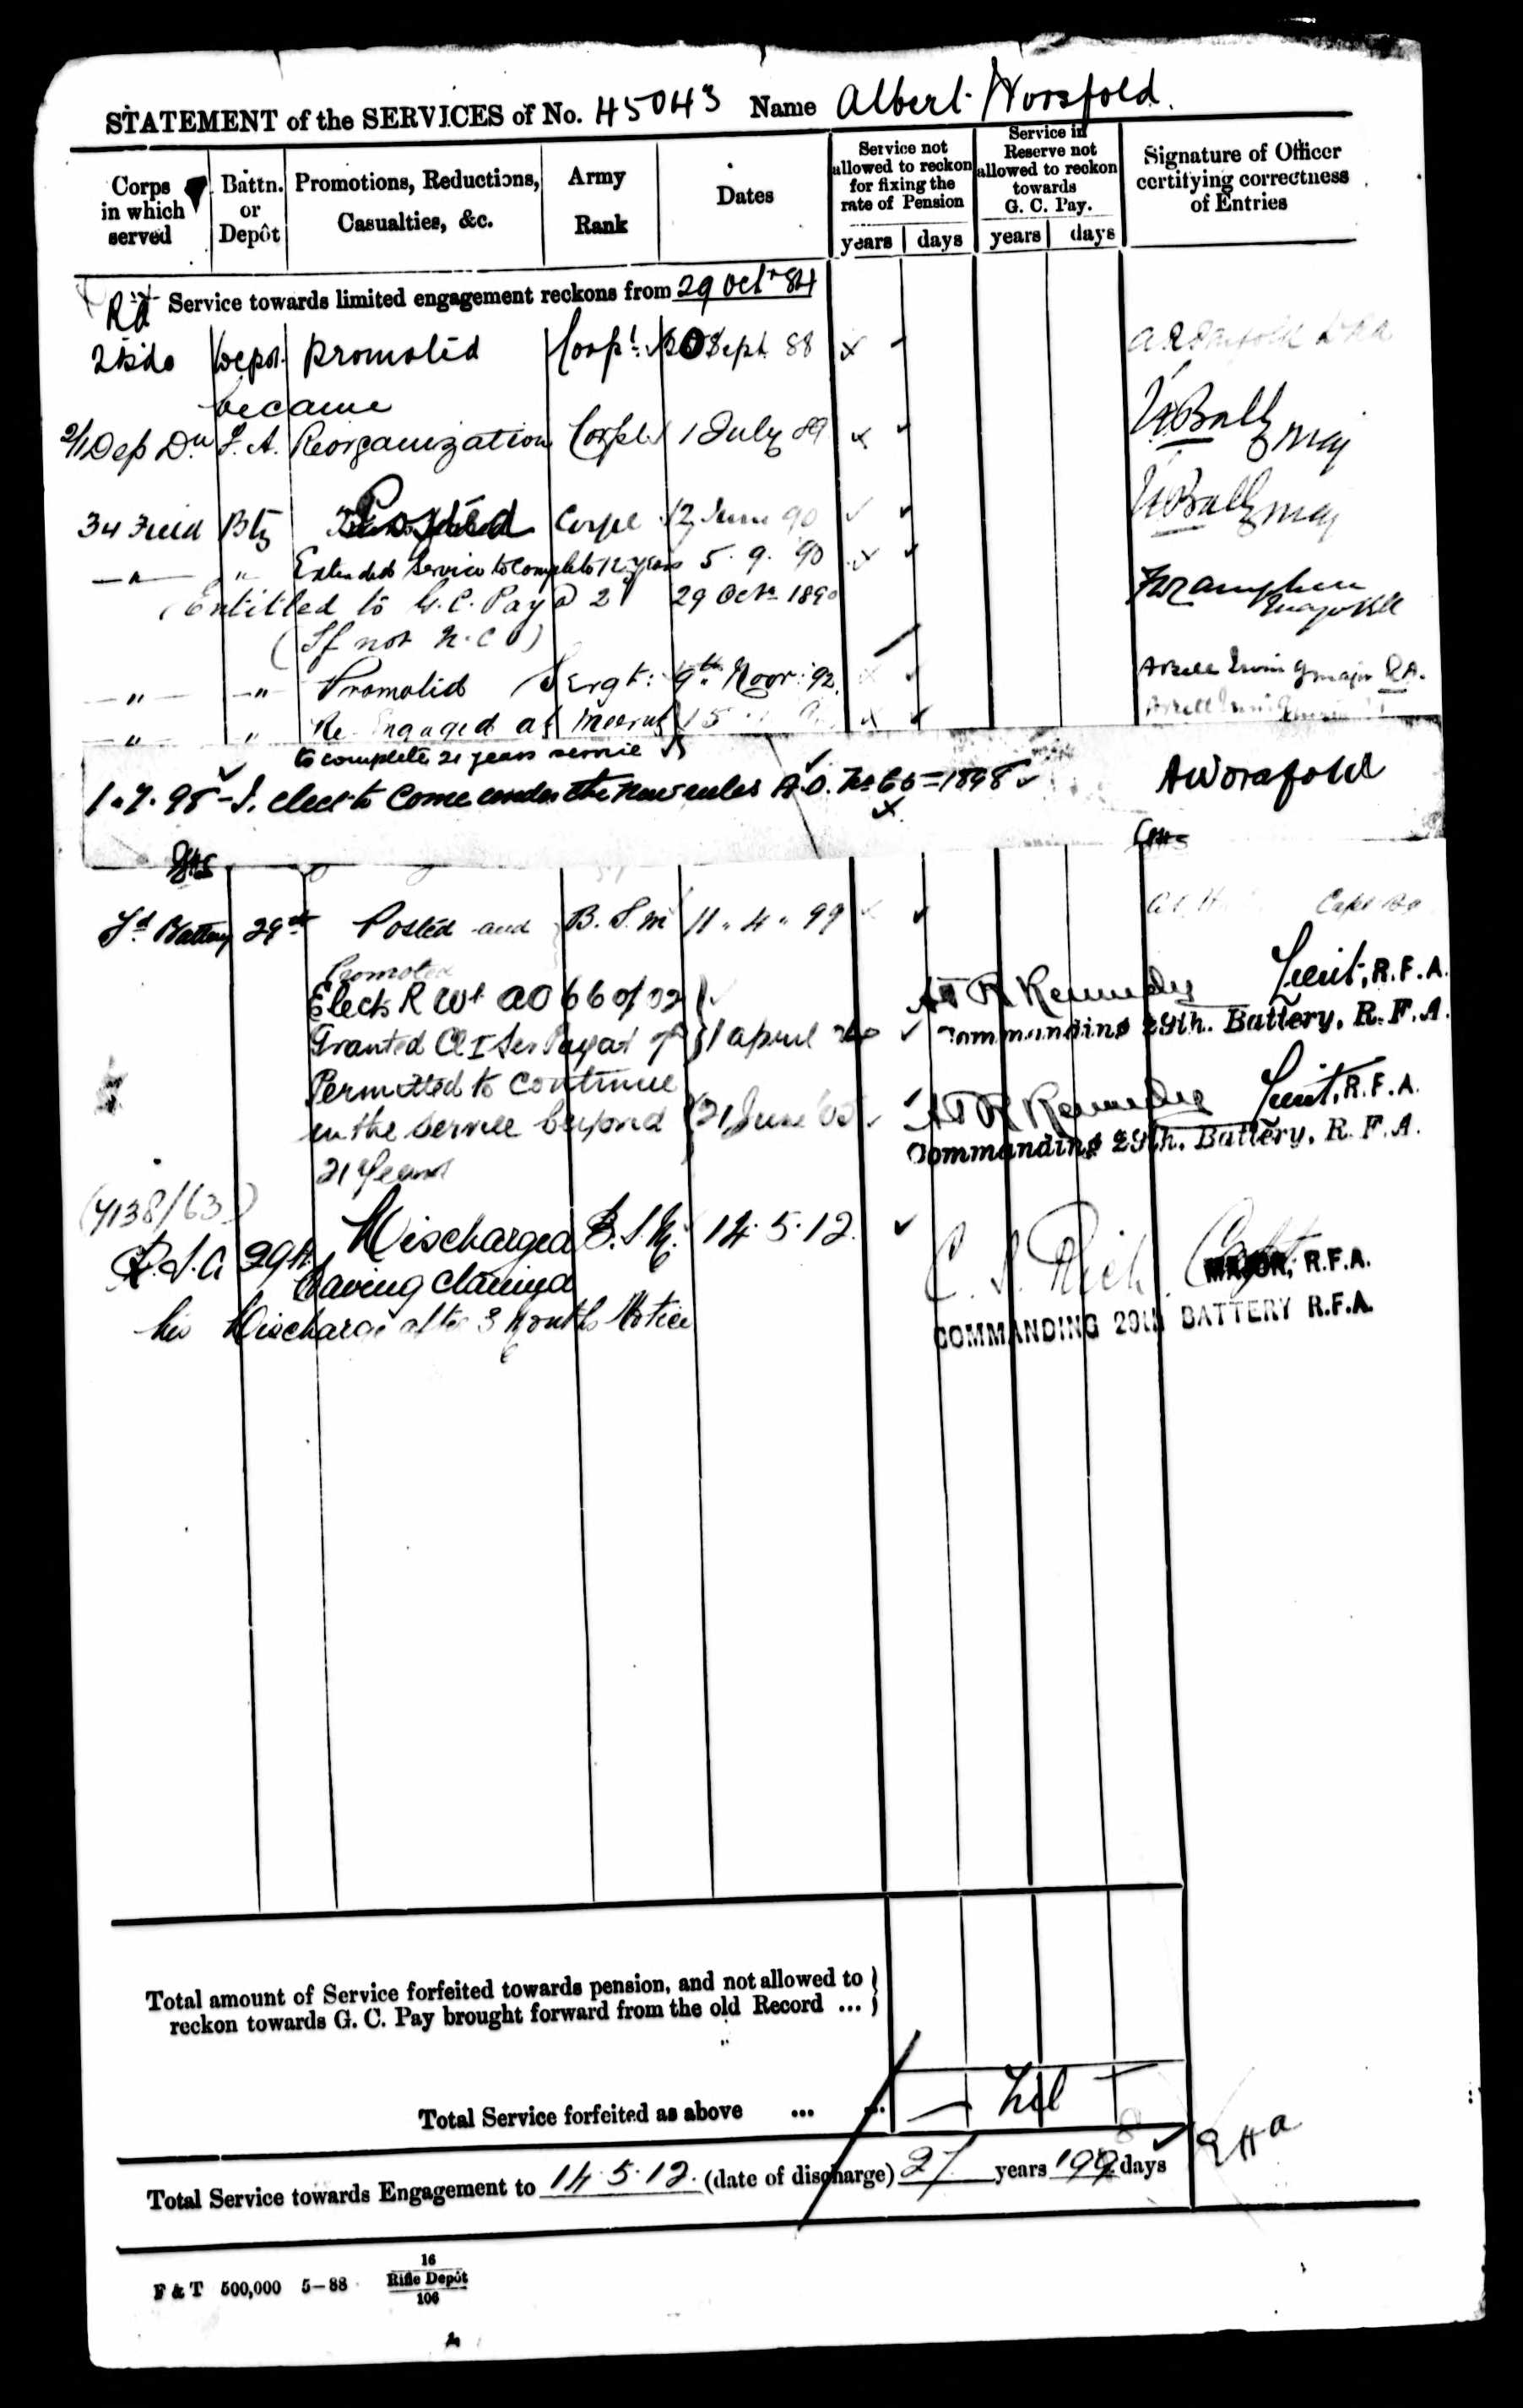 STATEMENT of the SERVICES of No. 45043 Name Albert Worsfold.
Corps in which served
Battn. or Depôt
Promotions, Reductions, Casualties, &c.
Army Rank
Dates
Service not allowed to reckon for fixing the rate of Pension
years days
Service in Reserve not allowed to reckon towards G. C. Pay.
years days
Signature of Officer certifying correctness of Entries
RA Service towards limited engagement reckons from 29 Octr 84
Depot Promoted Corpl Sept 88
became
2/1 Dep Dn F. A. Reorganization Corpl 1 July 89 Maj
34 Field Bty Posted Corpl 12 June 90 Maj
—"— " Extended Service to complete 12 years 5. 9. 90
Entitled to G. C. Pay @ 2d 29 Octr 1890
(If not N. C. O)
—"— —"— Promoted Sergt: 9th Novr: 92. Major RA.
—"— " Re-Engaged at Meerut 15
to complete 21 years service
1. 7. 98 - I. elect to come under the new rules A.O. No 66 = 1898 AWorsfold
Fd Battery 29th Posted and B. S. M 11 . 4 . 99 Capt
Promoted
Elects R Wt AO 66 of 02
Granted Cl I Ser Pay at 1 April
Kennedy Lieut, R. F. A.
Commanding 29th. Battery, R. F. A.
Permitted to continue
in the service beyond 21 June 05
21 Years
Kennedy Lieut, R. F. A.
Commanding 29th. Battery, R. F. A.
(7138/63)
R. F. A 29th. Discharged B. S. M. 14. 5. 12.
having claimed
his Discharge after 3 Months Notice
C. S. Rich Capt
MAJOR, R.F.A.
COMMANDING 29th BATTERY R.F.A.
Total amount of Service forfeited towards pension, and not allowed to
reckon towards G. C. Pay brought forward from the old Record ...
Total Service forfeited as above ... ... — Nil —
Total Service towards Engagement to 14. 5. 12. (date of discharge) 27 years 199 days
F & T 500,000 5–88 16
Rifle Depôt
106